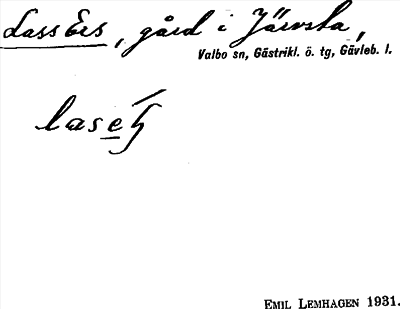 Lass Ers, gård i Järvsta,
Valbo sn, Gästrikl. ö. tg, Gävleb. l.
EMIL LEMHAGEN 1931.